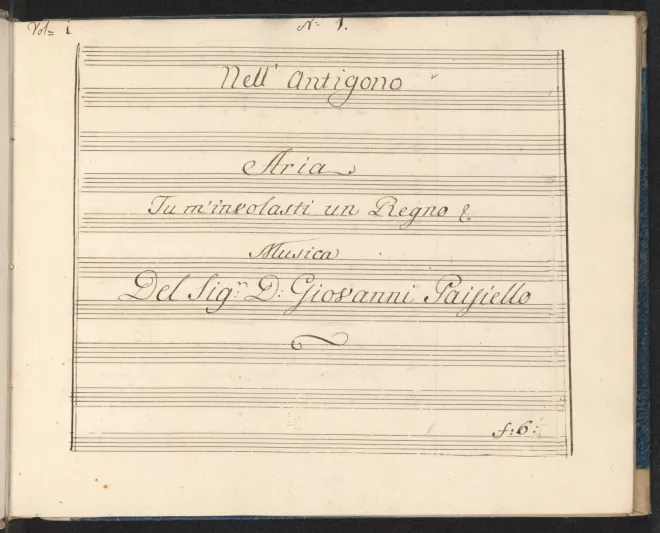 Vol= i
N= 1.
Nell' Antigono
Aria
Tu m'involasti un Regno &
Musica
Del Sig.r D: Giovanni Paisiello
f: 6: